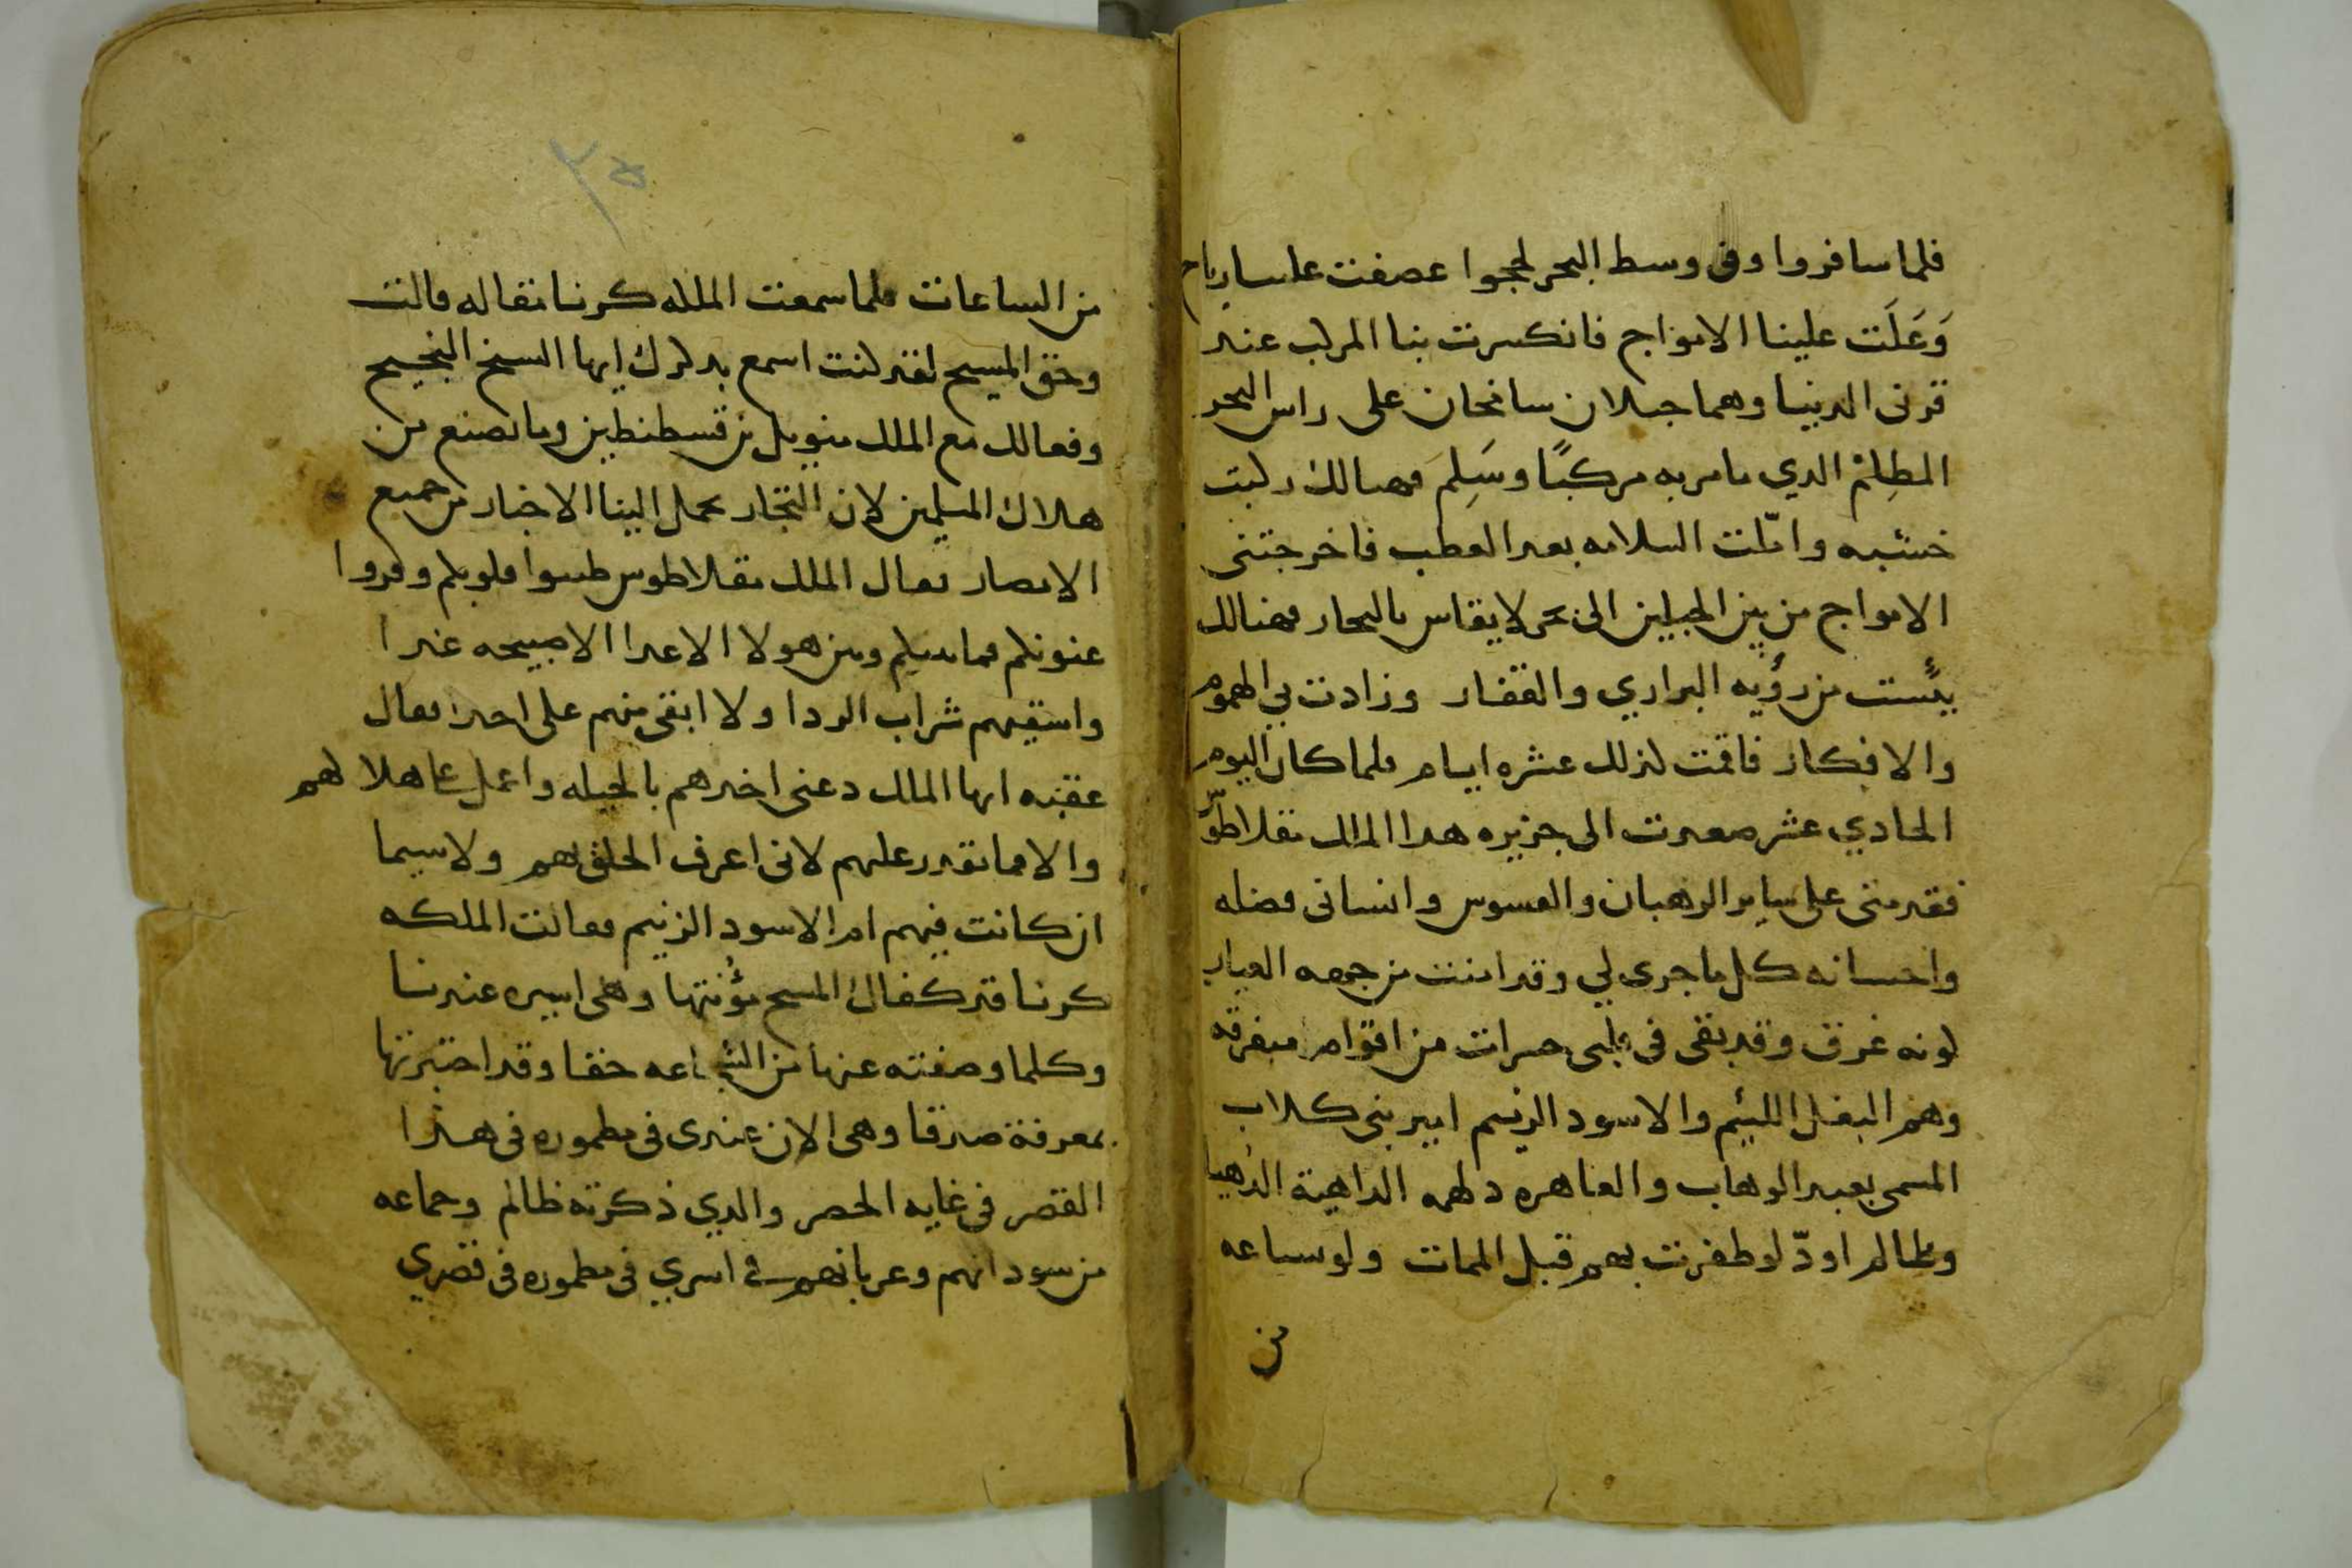 فلما سافروا وفى وسط البحر لججوا عصفت علينا رياح
وَعَلَت علينا الامواج فانكسرت بنا المركب عند
قرنى الدنيا وهما جبلان سامخان على راس البحر
المظلم الدي ما مر به مركبًا وسَلِمَ فهنالك ركبت
خشبه وامّلت السلامه بعد العطب فاخرجتنى
الامواج من بين الجبلين الى بحر لا يقاس بالبحار فهنالك
يئست من رؤيه البراري والقفار وزادت بي الهموم
والافكار فاقمت لذلك عشره ايام فلما كان اليوم
الحادي عشر صعدت الى جزيره هدا الملك مقلاطوس
فقدمنى على ساير الرهبان والقسوس وانسانى فضله
واحسانه كل ما جرى لي وقد امنت من جهه العيار
لونه غرق وقد بقى فى قلبى حسرات من اقوام متفرقه
وهم البغل اللئيم والاسود الزنيم امير بنى كلاب
المسمى بعبد الوهاب والعاهره دلهمه الداهية الدهيا
وظالم اودّ لو ظفرت بهم قبل الممات ولو ساعه
من
٣٥
من الساعات فلما سمعت الملكه كرنا مقاله قالت
وحق المسيح لقد كنت اسمع بذكرك ايها الشيخ النجيح
وفعالك مع الملك منويل بن قسطنطين وما تصنع من
هلاك المسلمين لان التجار تحمل الينا الاخبار من جميع
الامصار فقال الملك مقلاطوس طيبوا قلوبكم وقروا
عيونكم فما بينكم وبين هولا الاعدا الا صبيحه غدا
واسقيهم شراب الردا ولا ابقى منهم على احدا فقال
عقبه ايها الملك دعنى اخدهم بالحيله واعمل على هلاكهم
والا فما تقدر عليهم لانى اعرف الخلق بهم ولا سيما
ان كانت فيهم ام الاسود الزنيم فقالت الملكه
كرنا قد كفاك المسيح مؤنتها وهى اسيره عندنا
وكلما وصفته عنها من الشجاعه حقا وقد اختبرتها
بمعرفة صدقا وهى الان عندى فى مطموره فى هذا
القصر فى غايه الحصر والدي ذكرته ظالم وجماعه
من سودانهم وعربانهم فى اسري فى مطموره فى قصري